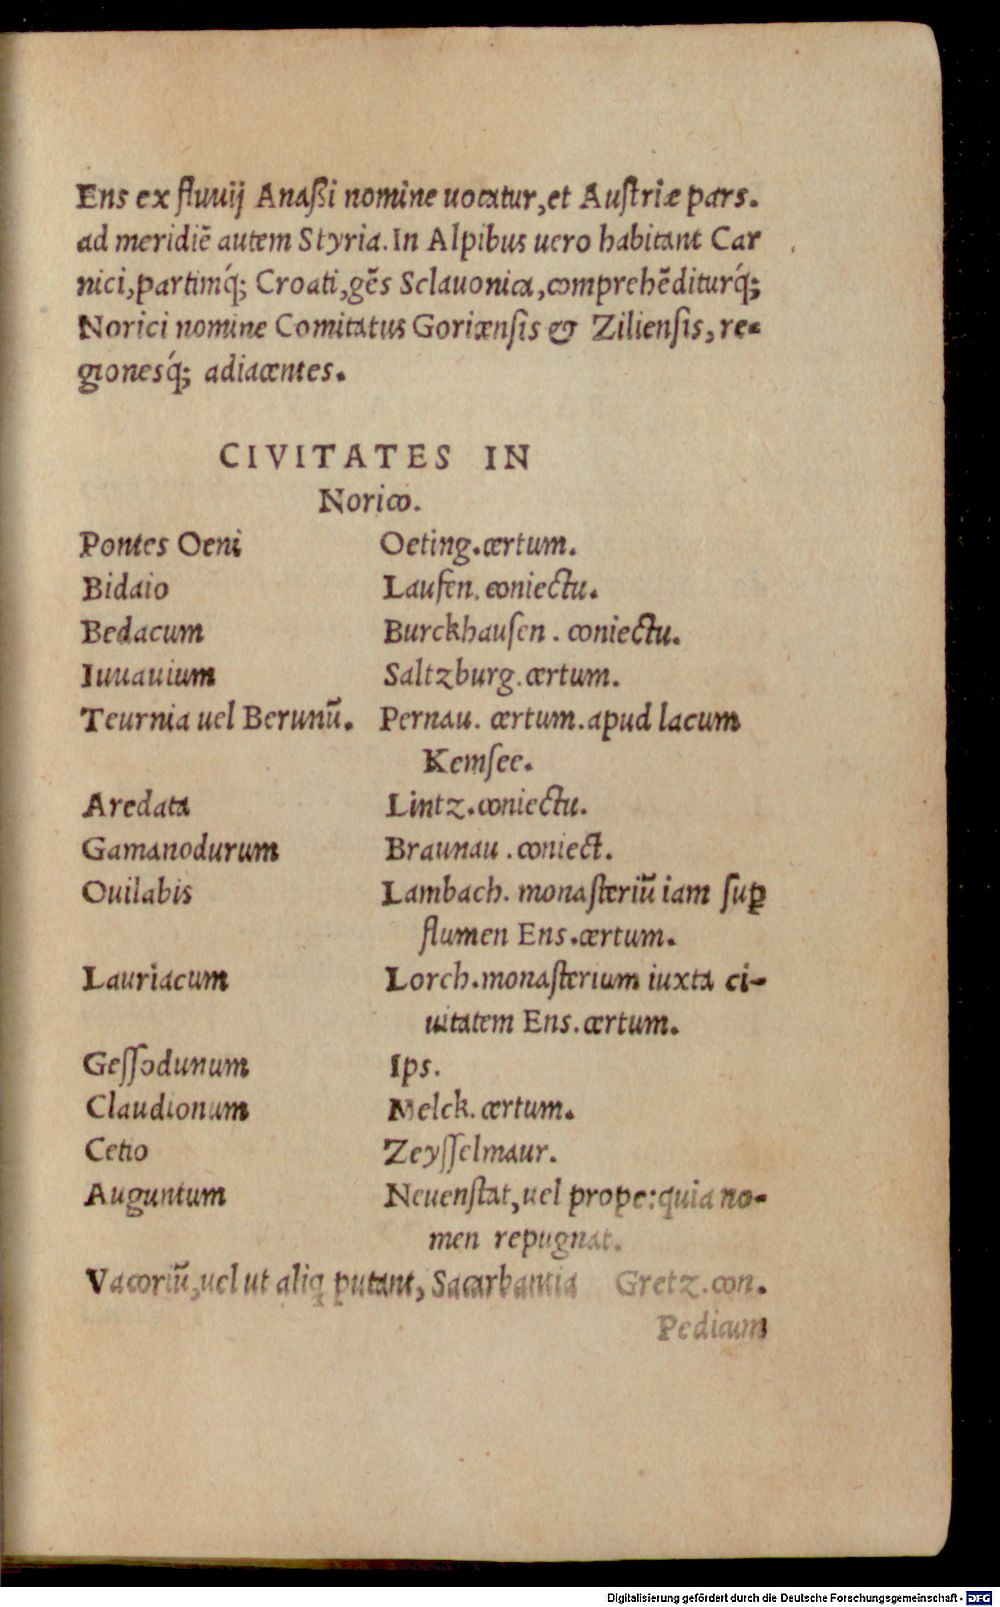 Ens ex fluuij Anaßi nomine uocatur, et Austriæ pars.
ad meridiē autem Styria. In Alpibus uero habitant Car
nici, partimq́; Croati, gēs Sclauonica, comprehēditurq́;
Norici nomine Comitatus Goricensis & Ziliensis, re-
gionesq́; adiacentes.
CIVITATES IN
Norico.
Pontes Oeni Oeting. certum.
Bidaio Laufen. coniectu.
Bedacum Burckhausen. coniectu.
Iuuauium Saltzburg. certum.
Teurnia uel Berunū. Pernau. certum. apud lacum
Kemsee.
Aredata Lintz. coniectu.
Gamanodurum Braunau. coniect.
Ouilabis Lambach. monasteriū iam suꝑ
flumen Ens. certum.
Lauriacum Lorch. monasterium iuxta ci-
uitatem Ens. certum.
Gessodunum Ips.
Claudionum Melck. certum.
Cetio Zeysselmaur.
Auguntum Neuenstat, uel prope: quia no-
men repugnat.
Vacoriū, uel ut aliq putant, Sacarbantia Gretz. con.
Pedicum
Digitalisierung gefördert durch die Deutsche Forschungsgemeinschaft - DFG